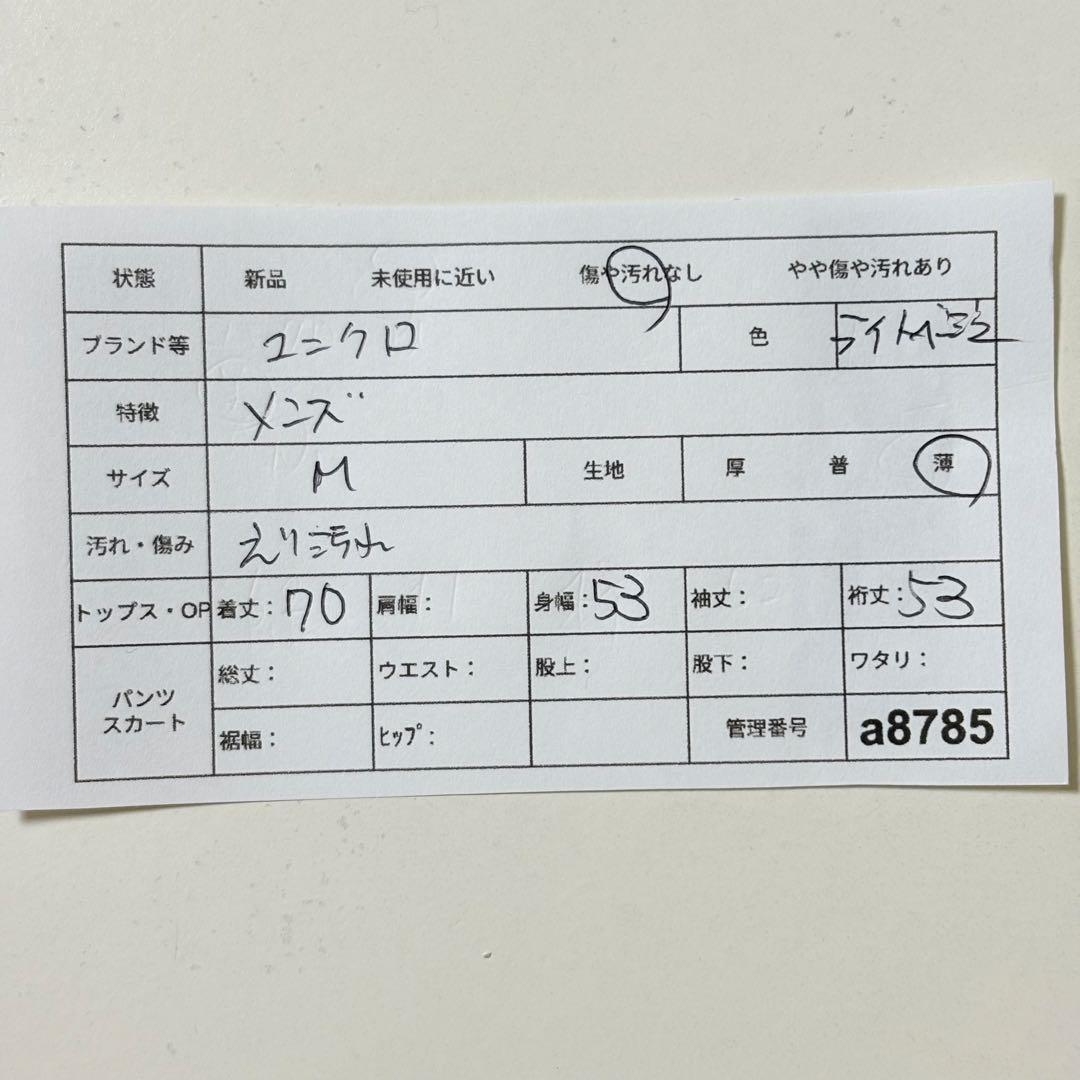 状態 新品 未使用に近い 傷や汚れなし やや傷や汚れあり
ブランド等 ユニクロ 色
特徴 メンズ
サイズ M 生地 厚 普 薄
汚れ・傷み えり汚れ
トップス・OP 着丈：70 肩幅： 身幅：53 袖丈： 裄丈：53
パンツ スカート 総丈： ウエスト： 股上： 股下： ワタリ：
裾幅： ﾋｯﾌﾟ： 管理番号 a8785